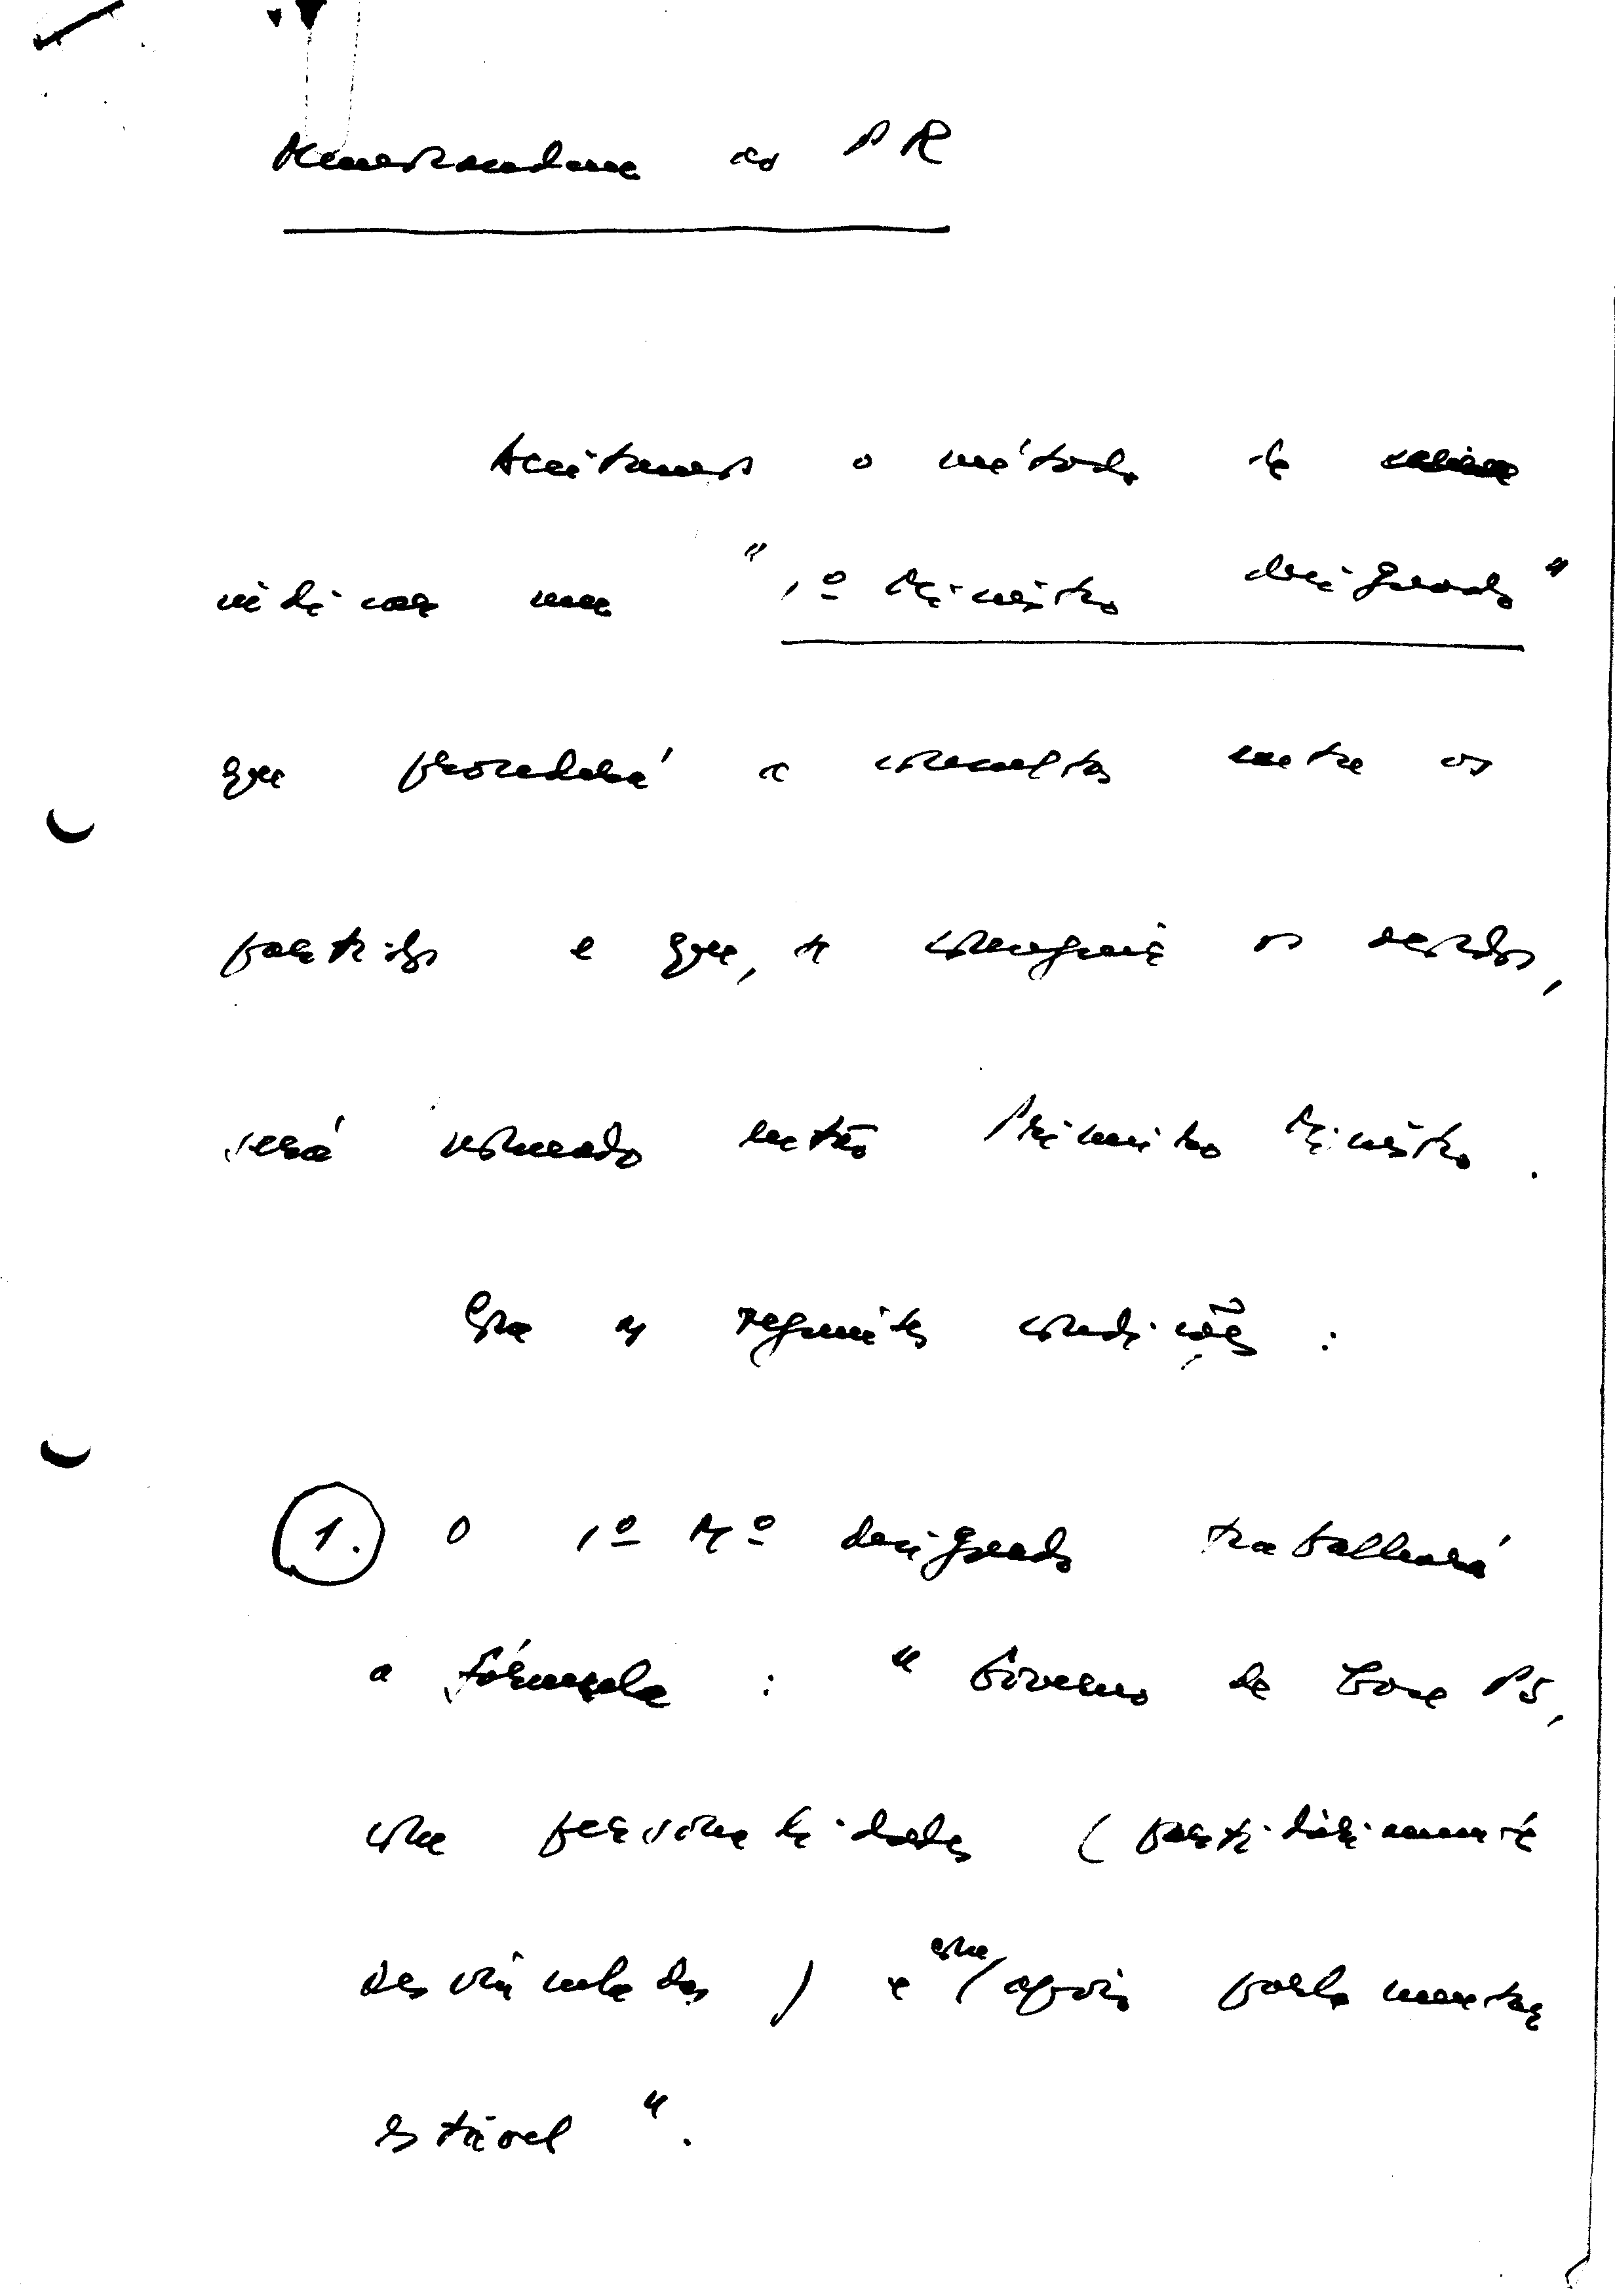 Memorandum ao PR
Aceitamos o método de
indicar um "1º Ministro designado"
que procederá a consultas entre os
partidos e que, se conseguir os acordos,
será nomeado então Primeiro Ministro.
Com as seguintes condições :
1. O 1º Mº designado trabalhará
a fórmula : "Governo de base PS,
com personalidades (partidàriamente
desvinculadas) e com apoio parlamentar
estável".